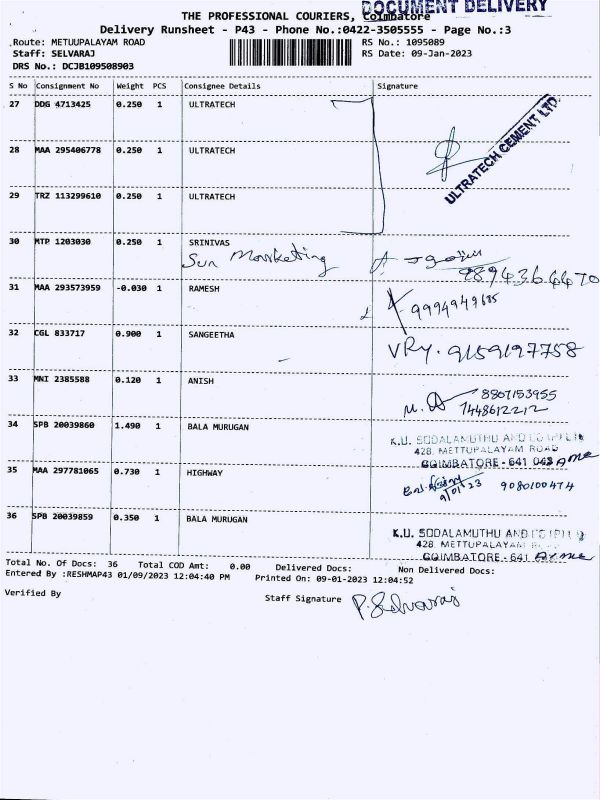 DOCUMENT DELIVERY
THE PROFESSIONAL COURIERS, Coimbatore
Delivery Runsheet - P43 - Phone No.:0422-3505555 - Page No.:3
Route: METUUPALAYAM ROAD
RS No.: 1095089
Staff: SELVARAJ
RS Date: 09-Jan-2023
DRS No.: DCJB109508903
S No Consignment No Weight PCS Consignee Details Signature
27 DDG 4713425 0.250 1 ULTRATECH
ULTRATECH CEMENT LTD.
28 MAA 295406778 0.250 1 ULTRATECH
29 TRZ 113299610 0.250 1 ULTRATECH
30 MTP 1203030 0.250 1 SRINIVAS
Sun Marketing
9894364470
31 MAA 293573959 -0.030 1 RAMESH
9994949685
32 CGL 833717 0.900 1 SANGEETHA
VRy. 9159197758
33 MNI 2385588 0.120 1 ANISH
8807153955
7448612212
34 SPB 20039860 1.490 1 BALA MURUGAN
K.U. SODALAMUTHU AND CO
428, METTUPALAYAM ROAD
COIMBATORE - 641 043
35 MAA 297781065 0.730 1 HIGHWAY
9/01/23 9080100474
36 SPB 20039859 0.350 1 BALA MURUGAN
K.U. SODALAMUTHU AND CO
428, METTUPALAYAM
COIMBATORE - 641
Total No. Of Docs: 36 Total COD Amt: 0.00 Delivered Docs: Non Delivered Docs:
Entered By :RESHMAP43 01/09/2023 12:04:40 PM Printed On: 09-01-2023 12:04:52
Verified By Staff Signature P. Selvaraj